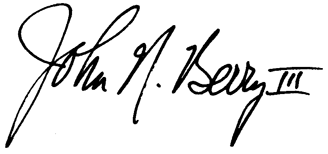 John N. Berry III